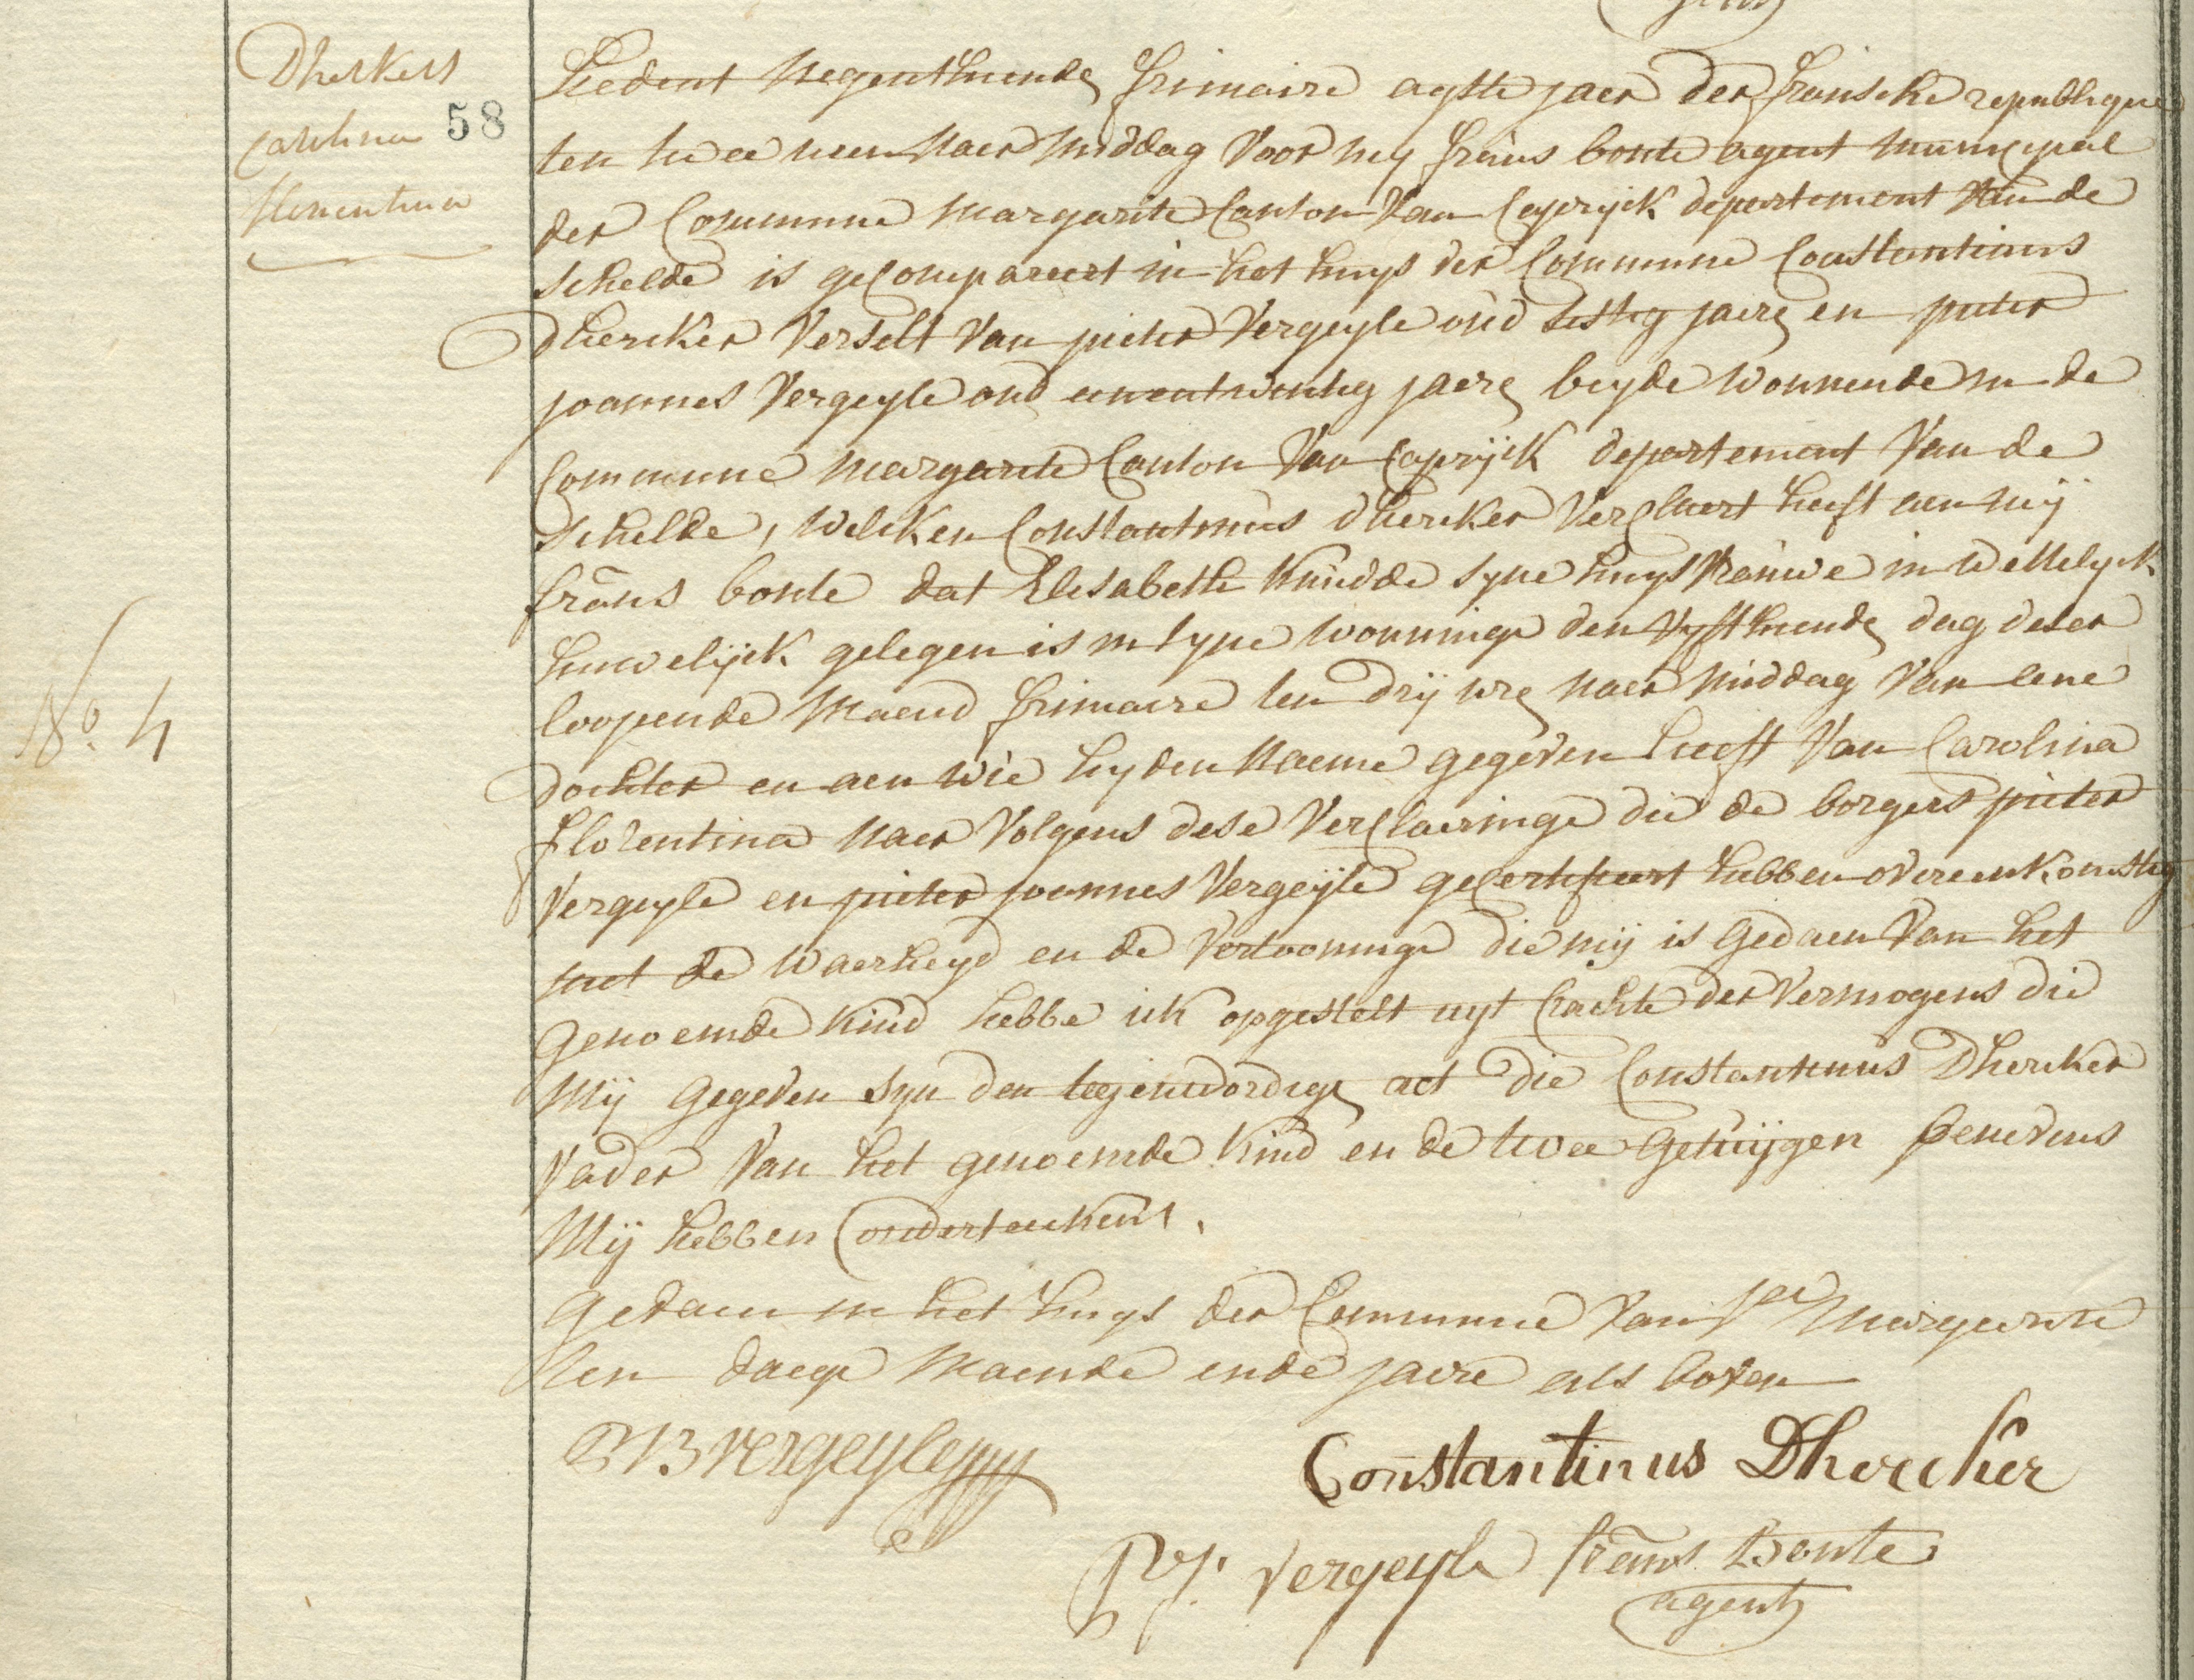 Dherkers
Carolina
florentina
58
No. 4
Hedent Negenthiende frimaire agtste jaer der franscke republique
ten twee uren Naer Middag Voor my frans bonte agent Municipal
der Commune Margarite Canton Van Capryck departement Van de
Schelde is geCompareert in het huys der Commune Constantinus
Dhercker Verselt Van pieter Vergeyle oud sestig jaere en pieter
joannes Vergeyle oud eenentwintig jaere beyde Wonnende in de
Commune Margarite Canton Van Caprijck departement Van de
Schelde, Welcken Constantinus dhercker VerClaert heeft aen mij
frans bonte dat Elisabethe Kudde syne huysvrauwe in Wettelyck
huwelijck gelegen is in syne Wonninge den Vyfthiende dag deser
loopende Maend frimaire ten drij ure Naer Middag Van eene
dochter en aen Wie hy den Naeme gegeven heeft Van Carolina
florentina Naer Volgens dese VerClaeringe die de borgers pieter
Vergeyle en pieter joannes Vergeyle geCertifieert hebben overeenkomstig
met de Waerheyd en de Vertooninge die mij is Gedaen Van het
Genoemde Kind hebbe ick opgestelt uyt Crachte der Vermogens die
Mij Gegeven syn den teegenwordige act die Constantinus Dhercker
Vader Van het genoemde Kind en de twee Getuijgen benevens
Mij hebben onderteekent.
Gedaen in het huys der Commune Van Ste Margarite
ten daege Maende ende jaere als boven
Vergeyle
Constantinus Dhercker
P J. Vergeyle frans Bonte
agent